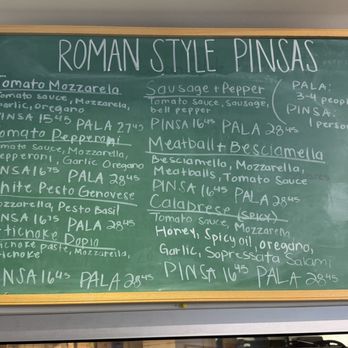 ROMAN STYLE PINSAS
Tomato Mozzarela
Tomato sauce, Mozzarela,
garlic, oregano
PINSA 15.45 PALA 27.45
Tomato Pepperoni
Tomato Sauce, Mozzarella
Pepperoni, Garlic Oregano
PINSA 16.75 PALA 28.45
White Pesto Genovese
Mozzarella, Pesto Basil
PINSA 16.75 PALA 28.45
Artichoke Dopio
Artichoke paste, Mozzarella,
Artichoke
PINSA 16.45 PALA 28.45
Sausage + Pepper
Tomato Sauce, sausage,
bell pepper
PINSA 16.45 PALA 28.45
Meatball + Besciamella
Besciamella, Mozzarella,
Meatballs, Tomato Sauce
PINSA 16.45 PALA 28.45
Calabrese (SPICY)
Tomato Sauce, Mozzarella
Honey, Spicy oil, oregano,
Garlic, Sopressata Salami
PINSA 16.45 PALA 28.45
PALA:
3-4 people
PINSA:
1 person